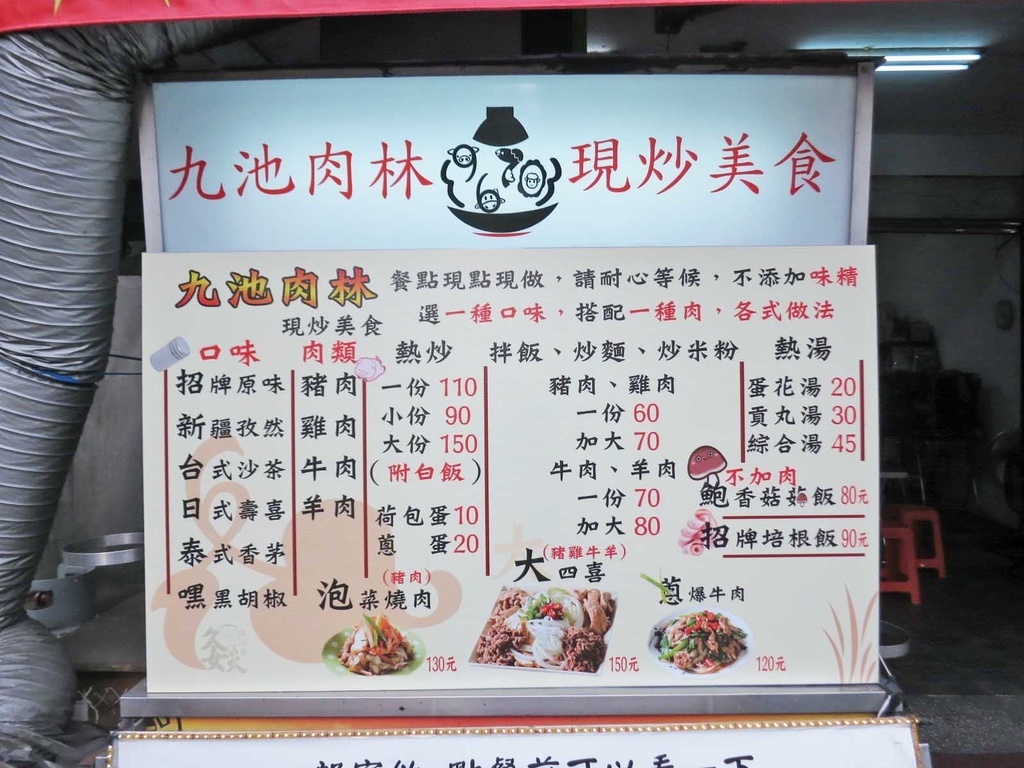 九池肉林 現炒美食
九池肉林 餐點現點現做，請耐心等候，不添加味精
現炒美食 選一種口味，搭配一種肉，各式做法
口味 肉類 熱炒 拌飯、炒麵、炒米粉 熱湯
招牌原味 豬肉 一份 110 豬肉、雞肉 蛋花湯 20
新疆孜然 雞肉 小份 90 一份 60 貢丸湯 30
台式沙茶 牛肉 大份 150 加大 70 綜合湯 45
日式壽喜 羊肉 (附白飯) 牛肉、羊肉 不加肉
泰式香茅 荷包蛋10 一份 70 鮑香菇菇飯 80元
嘿黑胡椒 蔥 蛋20 加大 80 招牌培根飯 90元
(豬肉) 泡菜燒肉 130元
(豬雞牛羊) 大四喜 150元
蔥爆牛肉 120元
點餐前可以看一下